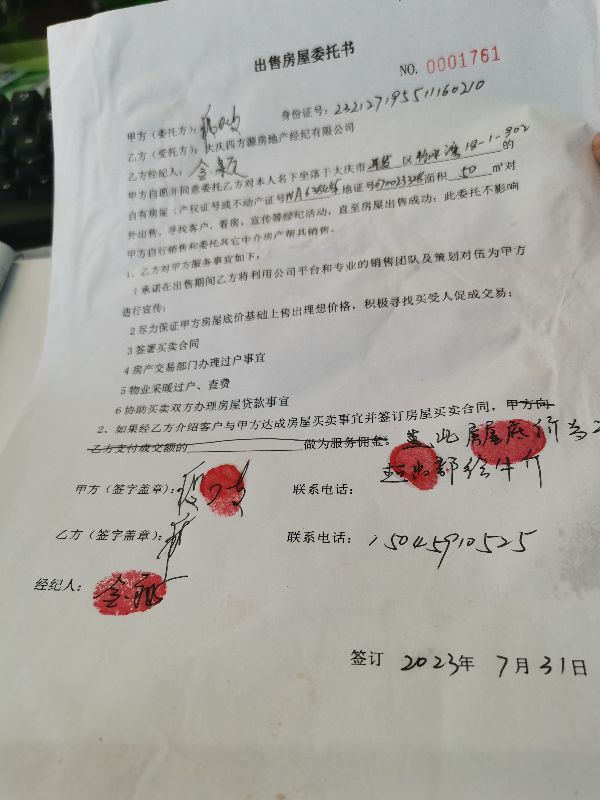 出售房屋委托书
NO. 0001761
甲方（委托方）： 身份证号：232127195511160210
乙方（受托方）：大庆四方源房地产经纪有限公司
乙方经纪人：
甲方自愿并同意委托乙方对本人名下坐落于大庆市 区 18-1-902 的
自有房屋（产权证号或不动产证号 地证号 面积 50 ㎡对
外出售、寻找客户，看房，宣传等经纪活动，直至房屋出售成功；此委托不影响
甲方自行销售和委托其它中介房产帮其销售。
1、乙方对甲方服务事宜如下：
1 承诺在出售期间乙方将利用公司平台和专业的销售团队及策划对伍为甲方
进行宣传；
2 尽力保证甲方房屋底价基础上售出理想价格，积极寻找买受人促成交易；
3 签署买卖合同
4 房产交易部门办理过户事宜
5 物业采暖过户、查费
6 协助买卖双方办理房屋贷款事宜
2、如果经乙方介绍客户与甲方达成房屋买卖事宜并签订房屋买卖合同，甲方向
乙方支付成交额的 做为服务佣金。 此房屋底价为
超出部给中介
甲方（签字盖章）： 联系电话：
乙方（签字盖章）： 联系电话：15045910525
经纪人：
签订 2023年 7月31日